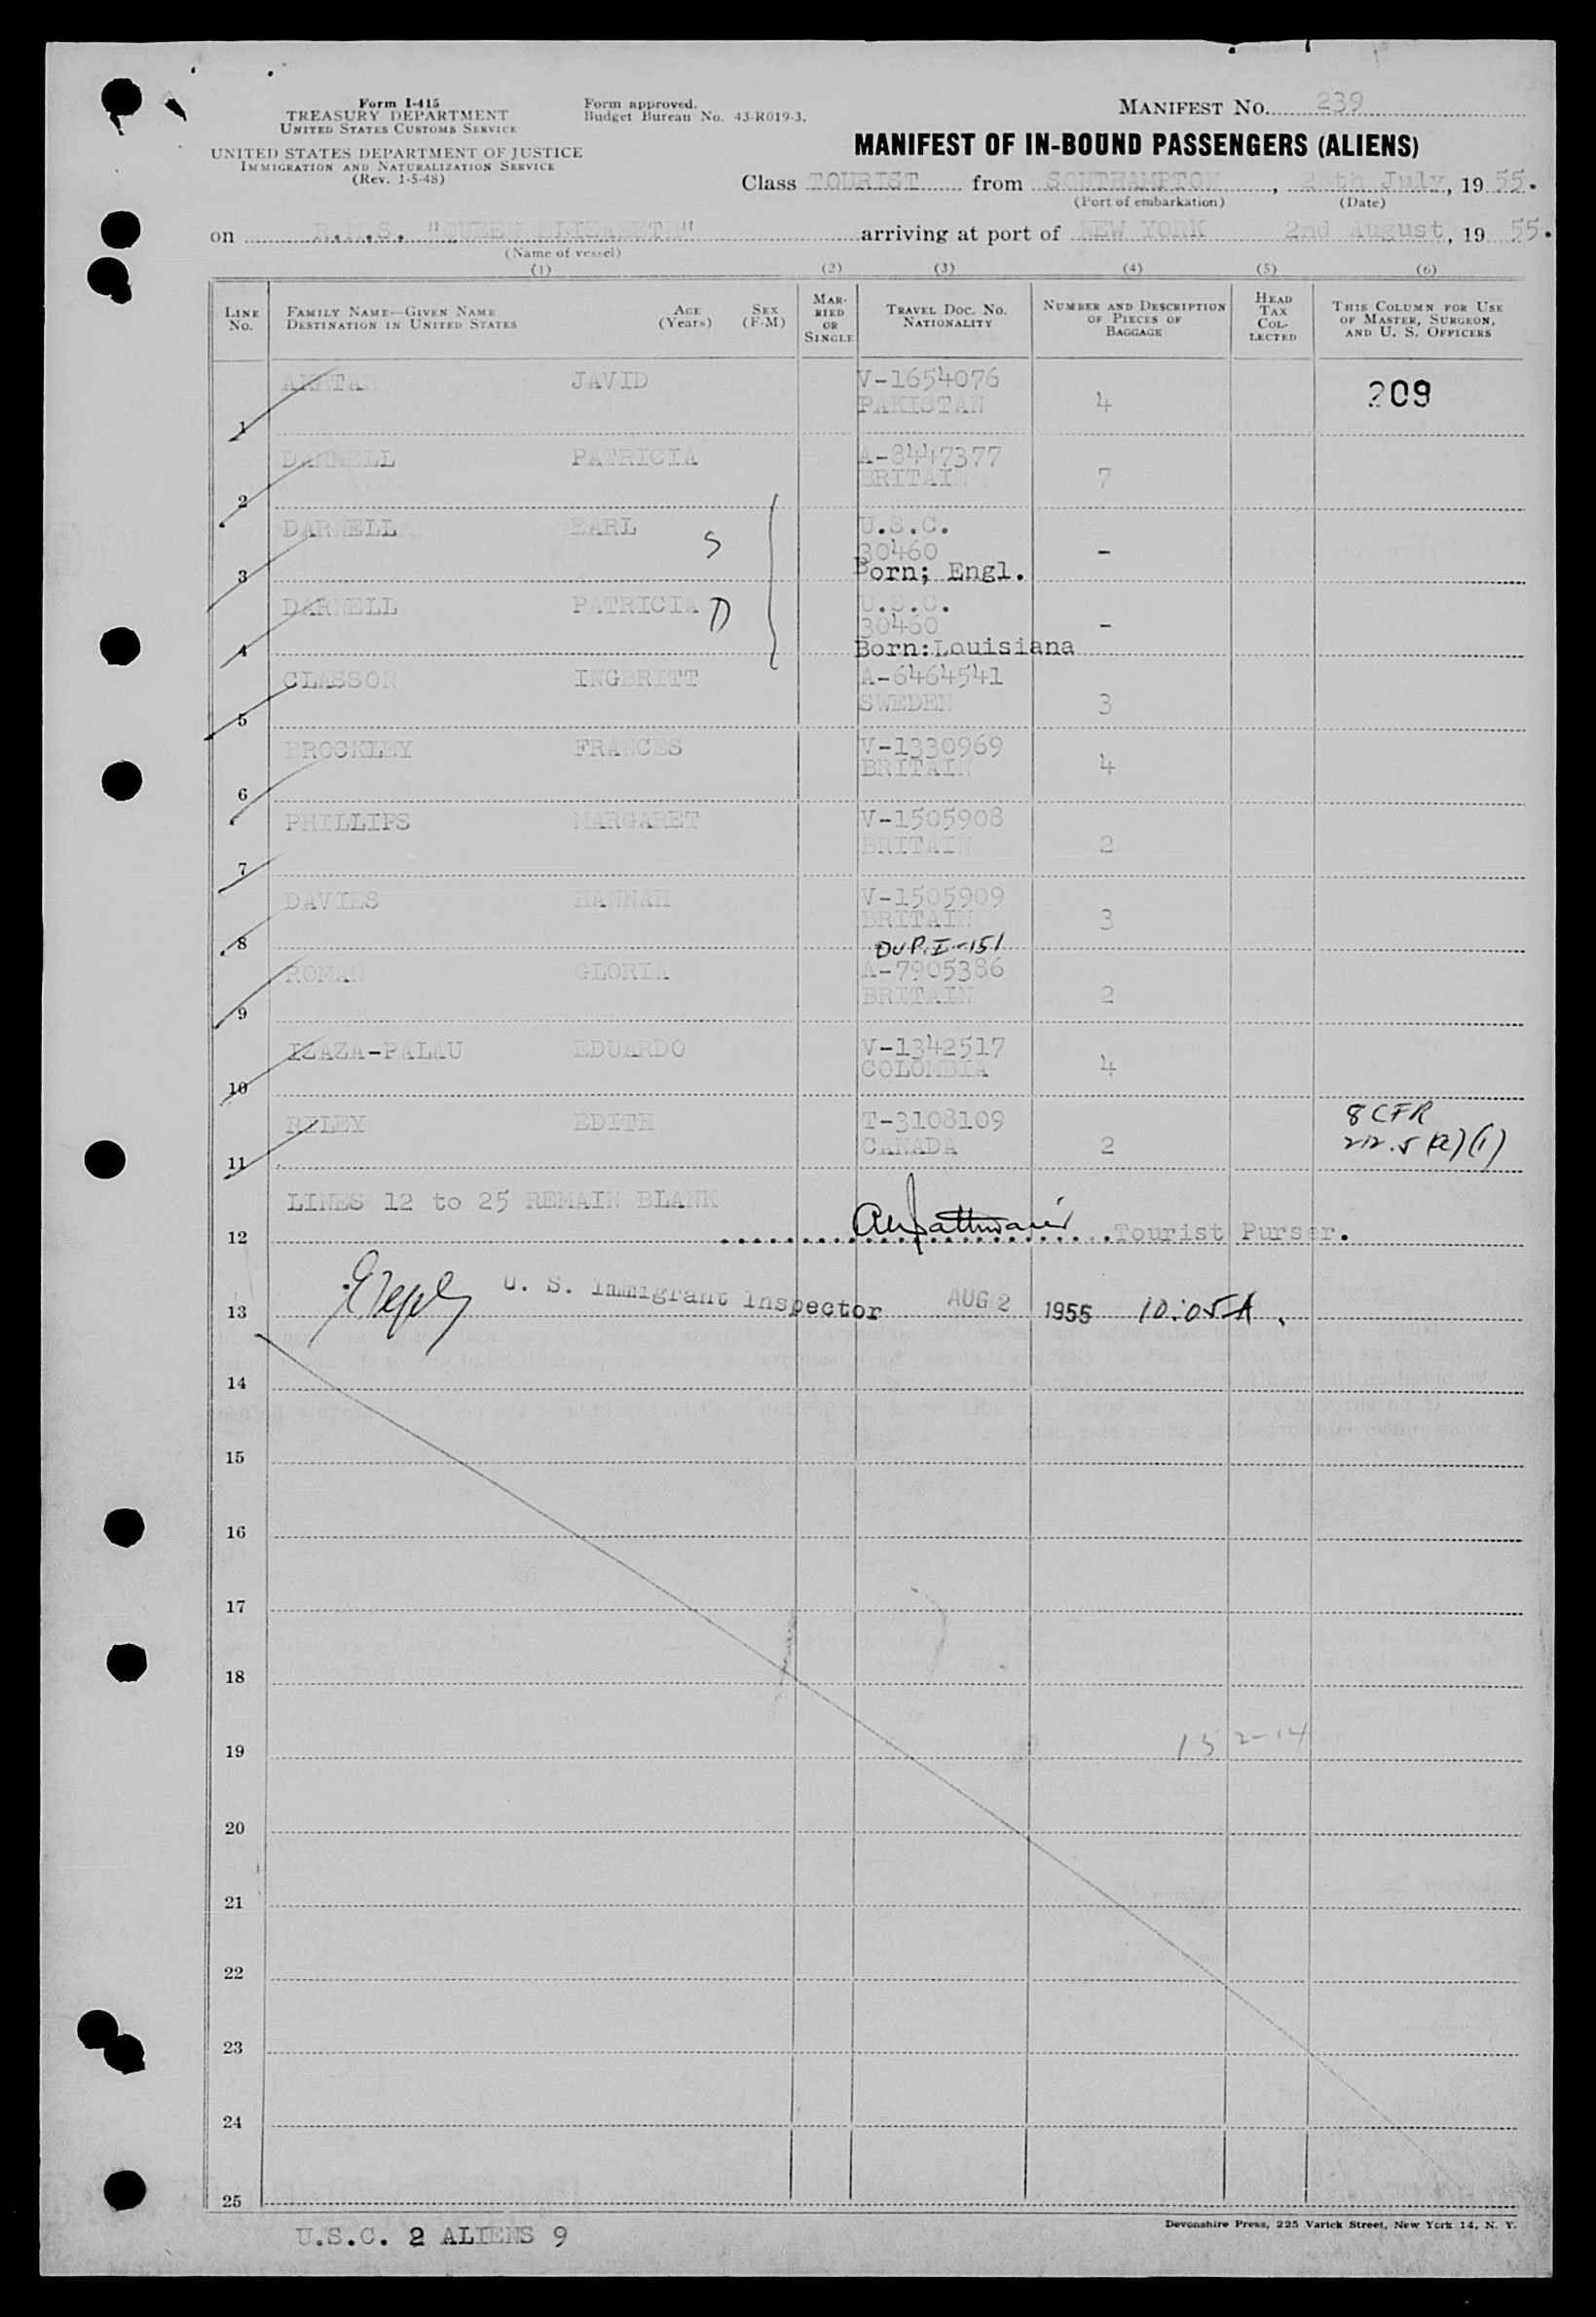 Form I-415
TREASURY DEPARTMENT
UNITED STATES CUSTOMS SERVICE
UNITED STATES DEPARTMENT OF JUSTICE
IMMIGRATION AND NATURALIZATION SERVICE
(Rev. 1-5-48)
Form approved.
Budget Bureau No. 43-R019-3.
MANIFEST NO. 239
MANIFEST OF IN-BOUND PASSENGERS (ALIENS)
Class TOURIST from SOUTHAMPTON, July, 19 55.
(Port of embarkation) (Date)
on R.M.S. "QUEEN ELIZABETH" arriving at port of NEW YORK 2nd August, 19 55.
(Name of vessel)
(1) (2) (3) (4) (5) (6)
LINE No. FAMILY NAME—GIVEN NAME DESTINATION IN UNITED STATES AGE (Years) SEX (F-M) MARRIED OR SINGLE TRAVEL DOC. NO. NATIONALITY NUMBER AND DESCRIPTION OF PIECES OF BAGGAGE HEAD TAX COLLECTED THIS COLUMN FOR USE OF MASTER, SURGEON, AND U. S. OFFICERS
AKHTAR JAVID V-1654076
1 PAKISTAN 4 209
DARNELL PATRICIA A-8447377
2 BRITAIN 7
DARNELL EARL S U.S.C.
30460 -
3 Born; Engl.
DARNELL PATRICIA D U.S.C.
30460 -
4 Born:Louisiana
CLASSON INGBRITT A-6464541
5 SWEDEN 3
BROCKLEY FRANCES V-1330969
6 BRITAIN 4
PHILLIPS MARGARET V-1505908
7 BRITAIN 2
DAVIES HANNAH V-1505909
8 BRITAIN 3
DUP. I-151
ROMAN GLORIA A-7905386
9 BRITAIN 2
IZAZA-PALAU EDUARDO V-1342517
10 COLOMBIA 4
RILEY EDITH T-3108109 8 CFR
11 CANADA 2 212.5 (a)(1)
LINES 12 to 25 REMAIN BLANK
12 Tourist Purser.
13 U. S. Immigrant Inspector AUG 2 1955 10:05 A.
14
15
16
17
18
19 152-14
20
21
22
23
24
25
U.S.C. 2 ALIENS 9
Devonshire Press, 225 Varick Street, New York 14, N. Y.